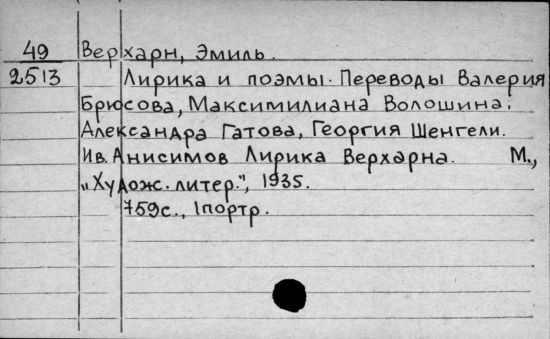 49 Верхарн, Эмиль.
2513 Лирика и поэмы. Переводы Валерия
Брюсова, Максимилиана Волошина,
Александра Гатова, Георгия Шенгели.
Ив. Анисимов Лирика Верхарна. М.,
„Худож. литер.", 1935.
759с., 1портр.